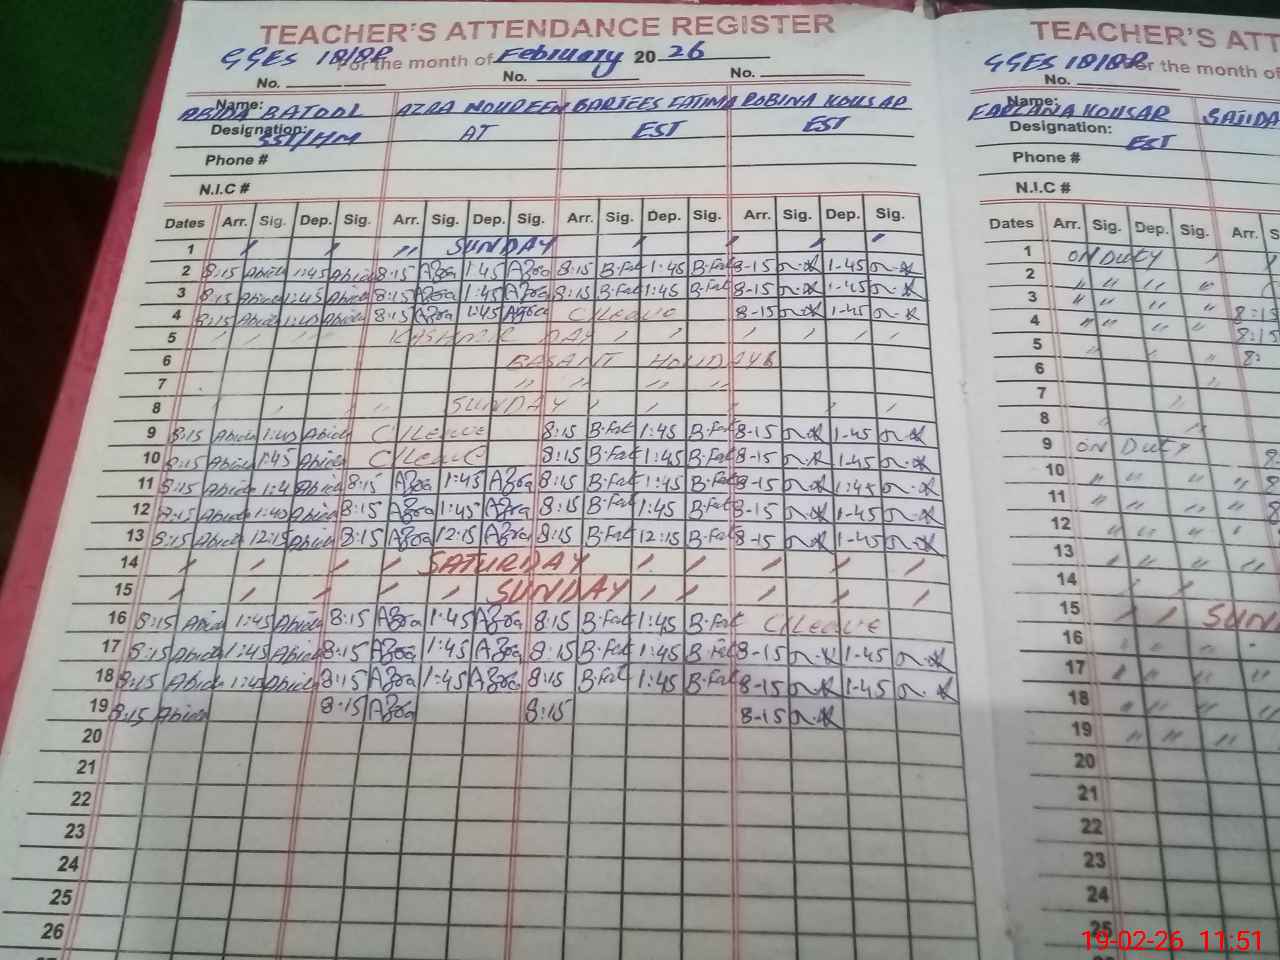 TEACHER'S ATTENDANCE REGISTER
GGES 18/8R For the month of February 2026
No. No. No.
Name: ABIDA BATOOL AZRA NOUREEN BARJEES FATIMA ROBINA KOUSAR
Designation: SST/HM AT EST EST
Phone #
N.I.C #
Dates Arr. Sig. Dep. Sig. Arr. Sig. Dep. Sig. Arr. Sig. Dep. Sig. Arr. Sig. Dep. Sig.
1 SUNDAY
2 8:15 Abida 1:45 Abida 8:15 Azra 1:45 Azra 8:15 B.Fat 1:45 B.Fat 8-15 1-45
3 8:15 Abida 1:45 Abida 8:15 Azra 1:45 Azra 8:15 B.Fat 1:45 B.Fat 8-15 1-45
4 8:15 Abida 1:45 Abida 8:15 Azra 1:45 Azra C/Leave 8-15 1-45
5 KASHMIR DAY
6 BASANT HOLIDAYS
7 " " " "
8 SUNDAY
9 8:15 Abida 1:45 Abida C/Leave 8:15 B.Fat 1:45 B.Fat 8-15 1-45
10 8:15 Abida 1:45 Abida C/Leave 8:15 B.Fat 1:45 B.Fat 8-15 1-45
11 8:15 Abida 1:4 Abida 8:15 Azra 1:45 Azra 8:15 B.Fat 1:45 B.Fat 8-15 1:45
12 8:15 Abida 1:45 Abida 8:15 Azra 1:45 Azra 8:15 B.Fat 1:45 B.Fat 8-15 1-45
13 8:15 Abida 12:15 Abida 8:15 Azra 12:15 Azra 8:15 B.Fat 12:15 B.Fat 8-15 1-45
14 SATURDAY
15 SUNDAY
16 8:15 Abida 1:45 Abida 8:15 Azra 1:45 Azra 8:15 B.Fat 1:45 B.Fat C/Leave
17 8:15 Abida 1:45 Abida 8:15 Azra 1:45 Azra 8:15 B.Fat 1:45 B.Fat 8-15 1-45
18 8:15 Abida 1:45 Abida 8:15 Azra 1:45 Azra 8:15 B.Fat 1:45 B.Fat 8-15 1-45
19 8:15 Abida 8:15 Azra 8:15 8-15
20
21
22
23
24
25
26
TEACHER'S ATT
GGES 18/8R For the month of
No.
Name: FARZANA KOUSAR SAJIDA
Designation: EST
Phone #
N.I.C #
Dates Arr. Sig. Dep. Sig. Arr. S
1 ON DUTY
2 " " " "
3 " " " " 8:15
4 " " " " 8:15
5 8:
6
7
8
9 ON DUTY 8
10 " " " "
11 " " " "
12 " " " "
13 " " " "
14
15 SUN
16 " " "
17 " " " "
18 " " " "
19 " " " "
20
21
22
23
24
25
19-02-26 11:51